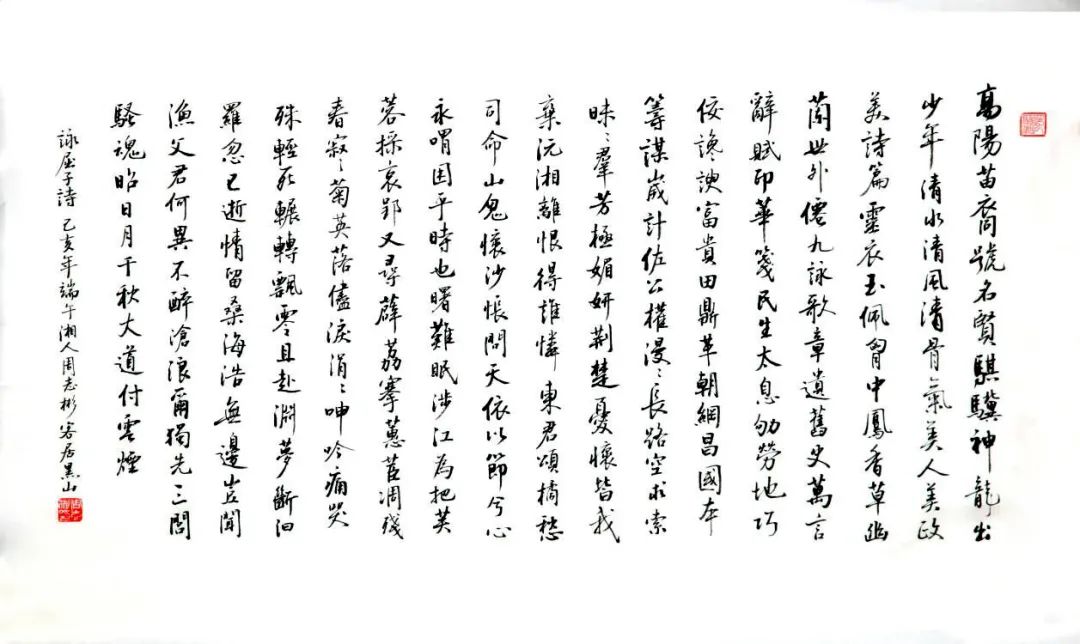 高陽苗裔號名賢騏驥神龍出
少年清水清風清骨氣美人美政
美詩篇靈衣玉佩胷中鳳香草幽
蘭世外僊九詠歌章遺舊史萬言
辭賦印華箋民生太息劬勞地巧
佞讒諛富貴田鼎革朝綱昌國本
籌謀歲計佐公權漫〻長路空求索
昧〻羣芳極媚妍荆楚憂懷皆我
棄沅湘離恨得誰憐東君頌橘愁
司命山鬼懷沙悵問天依以節兮心
永喟困乎時也曙難眠涉江為把芙
蓉採哀郢又尋薜荔搴蕙茝凋殘
春寂〻菊英落儘淚涓〻呻吟痛哭
殊輕死輾轉飄零且赴淵夢斷汨
羅忽已逝情留桑海浩無邊豈聞
漁父君何異不醉滄浪爾獨先三閭
騷魂昭日月千秋大道付雲煙
詠屈子詩 己亥年端午湘人周志彬客居黑山